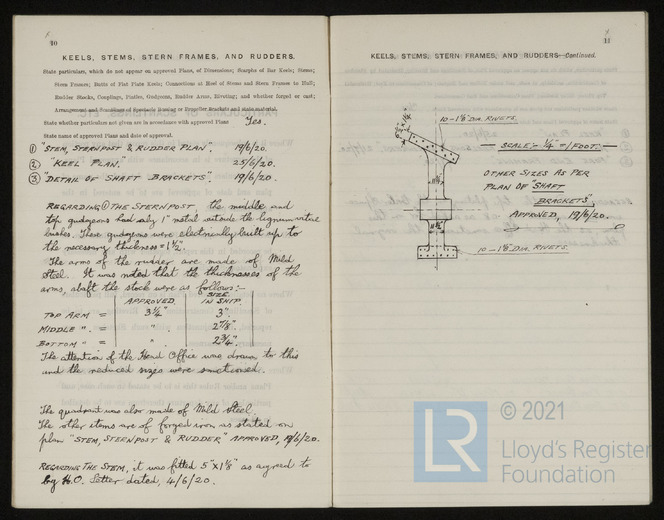 10
KEELS, STEMS, STERN FRAMES, AND RUDDERS.
State particulars, which do not appear on approval Plans, of Dimensions; Scarphs of Bar Keels; Stems;
Stern Frames; Butts of Flat Plate Keels; Connections at Heel of Stems and Stern Frames to Hull;
Rudder Stocks, Couplings, Pintles, Gudgeons, Rudder Arms, Riveting; and whether forged or cast;
Arrangement and Scantlings of Spectacle Bossing or Propeller Brackets and state material.
State whether particulars not given are in accordance with approved Plans Yes.
State name of approved Plans and date of approval.
① "STEM, STERNPOST & RUDDER PLAN". 19/6/20.
② "KEEL PLAN." 25/6/20.
③ "DETAIL OF SHAFT BRACKETS" 19/6/20.
REGARDING ① THE STERNPOST, the middle and
top gudgeons had only 1" metal outside the lignum vitae
bushes. These gudgeons were electrically built up to
the necessary thickness = 1½".
The arms of the rudder are made of Mild
Steel. It was noted that the thickness of the
arms, abaft the stock were as follows:-
APPROVED. SIZE IN SHIP.
TOP ARM = 3¼" 3".
MIDDLE " = " 2⅞".
BOTTOM " = " 2¾".
The attention of the Head Office was drawn to this
and the reduced sizes were sanctioned.
The quadrant was also made of Mild Steel.
The other items are of forged iron as stated on
plan "STEM, STERNPOST & RUDDER" APPROVED, 19/6/20.
REGARDING THE STEM, it was fitted 5" x 1⅛" as agreed to
by H.O. Letter dated, 4/6/20.
11
KEELS, STEMS, STERN FRAMES, AND RUDDERS—Continued.
10 - 1⅛" DIA. RIVETS.
SCALE:- ¼" = 1 FOOT.
OTHER SIZES AS PER
PLAN OF "SHAFT
BRACKETS",
APPROVED, 19/6/20.
10 - 1⅛" DIA. RIVETS.
LR
© 2021
Lloyd's Register
Foundation